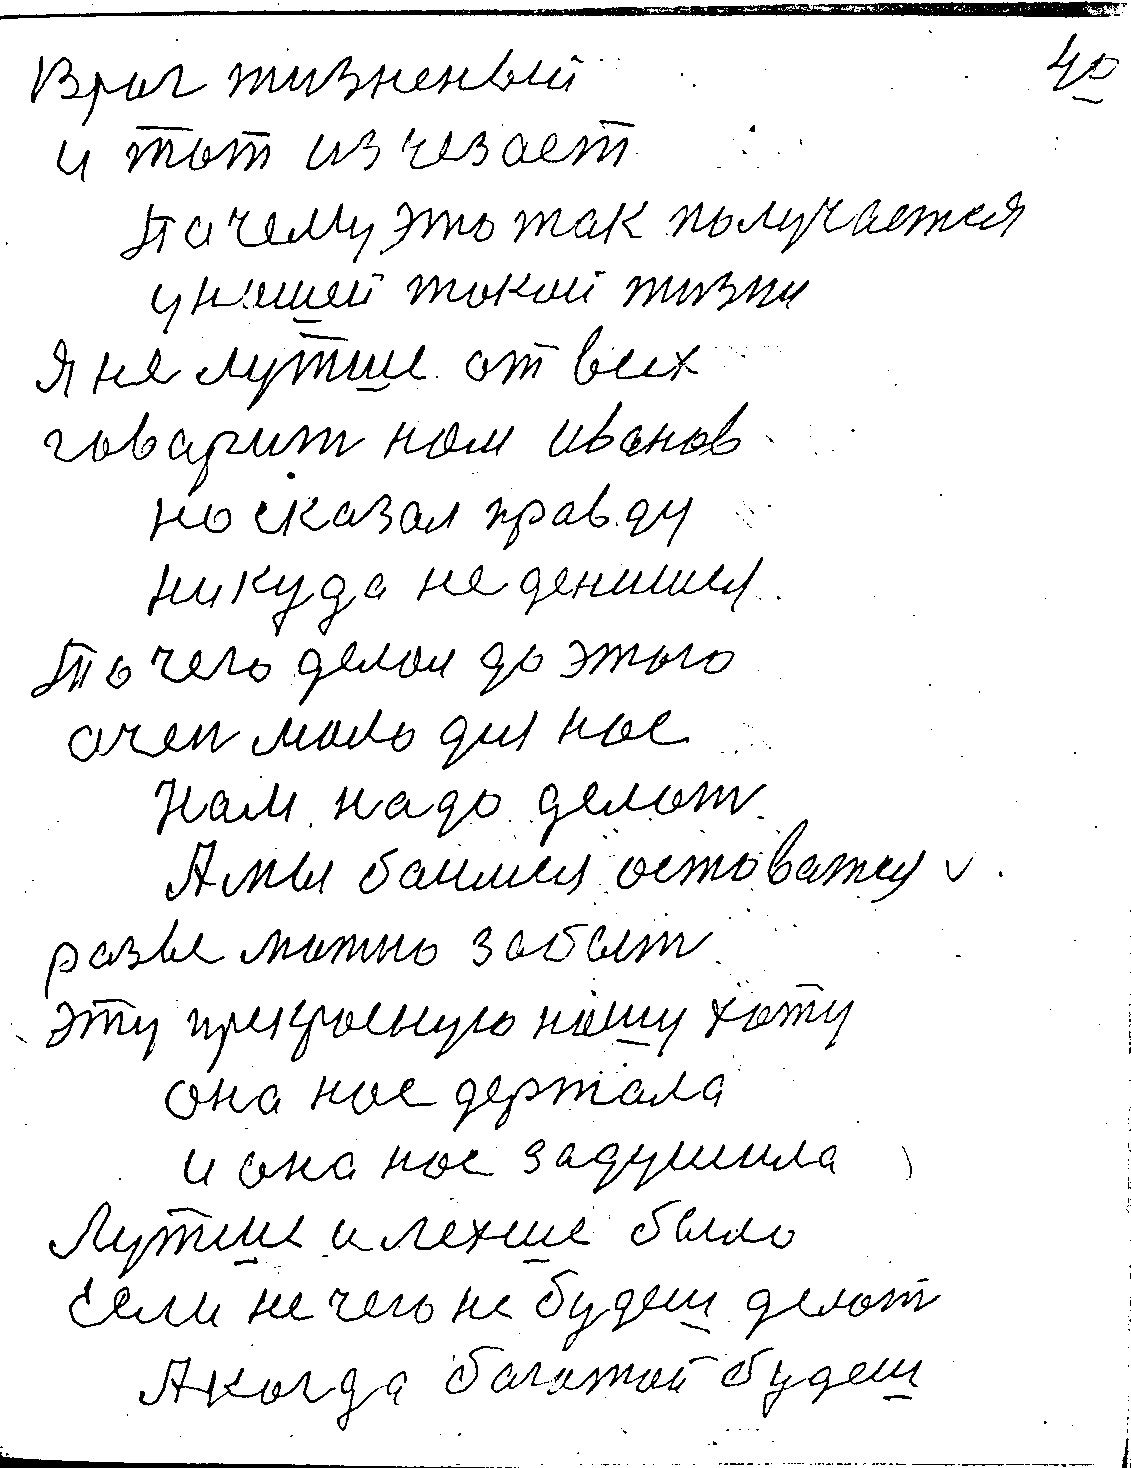 40
Враг жизненый
и тот изчезает
Пачему это так получается
у нашей такой жизни
Я не лутше от всех
говарит нам иванов
но сказал правду
никуда не денишся
То чего делал до этого
очен мало для нас
Нам надо делат
А мы баимся оставатся
разве можно забыт
эту прекрасную нашу хату
она нас держала
и она нас задушила
Лутше и лехше было
Если не чего не будеш делат
А когда багатой будеш